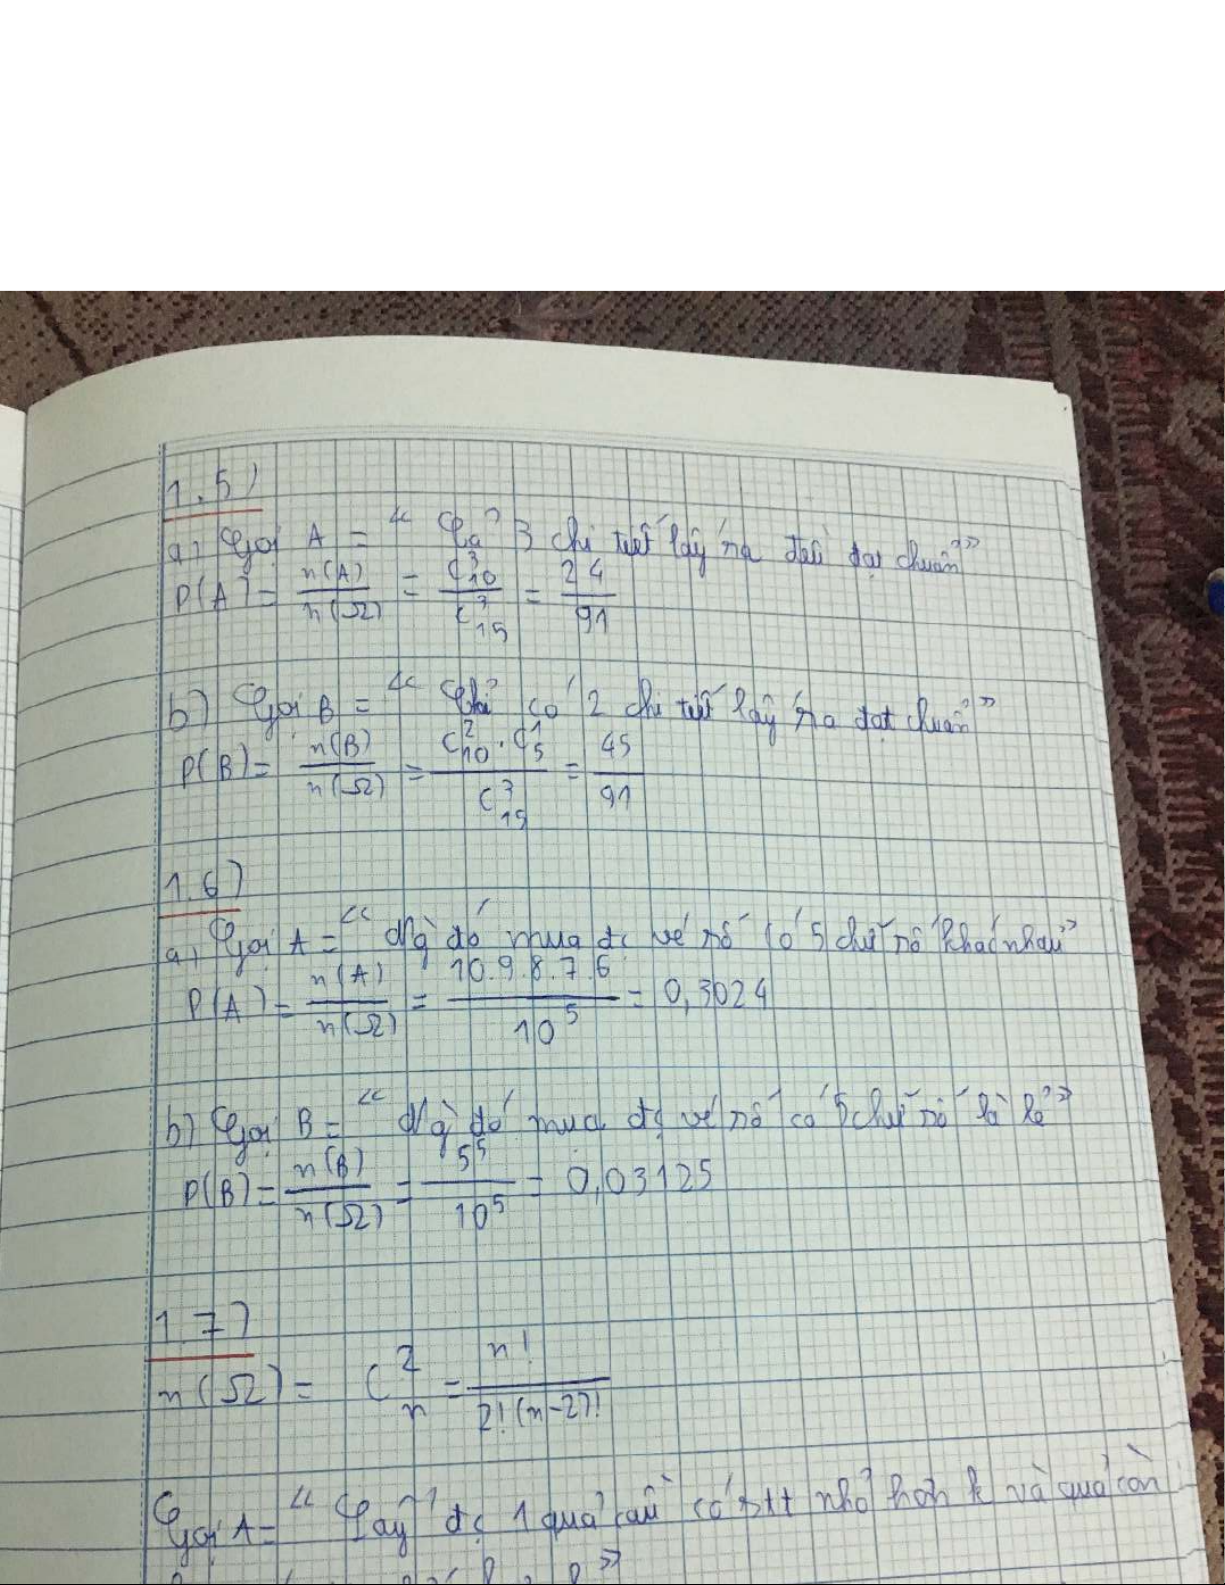 1.5)
a) Gọi A = "Cả 3 chi tiết lấy ra đều đạt chuẩn"
P(A) = n(A)/n(Ω) = C³₁₀/C³₁₅ = 24/91
b) Gọi B = "Chỉ có 2 chi tiết lấy ra đạt chuẩn"
P(B) = n(B)/n(Ω) = C²₁₀.C¹₅/C³₁₅ = 45/91
1.6)
a) Gọi A = "Ng đó mua đc vé số có 5 chữ số khác nhau"
P(A) = n(A)/n(Ω) = 10.9.8.7.6/10⁵ = 0,3024
b) Gọi B = "Ng đó mua đc vé số có 5 chữ số là lẻ"
P(B) = n(B)/n(Ω) = 5⁵/10⁵ = 0,03125
1.7)
n(Ω) = C²ₙ = n!/2!(n-2)!
Gọi A = "Lấy đc 1 quả cầu có stt nhỏ hơn k và quả còn